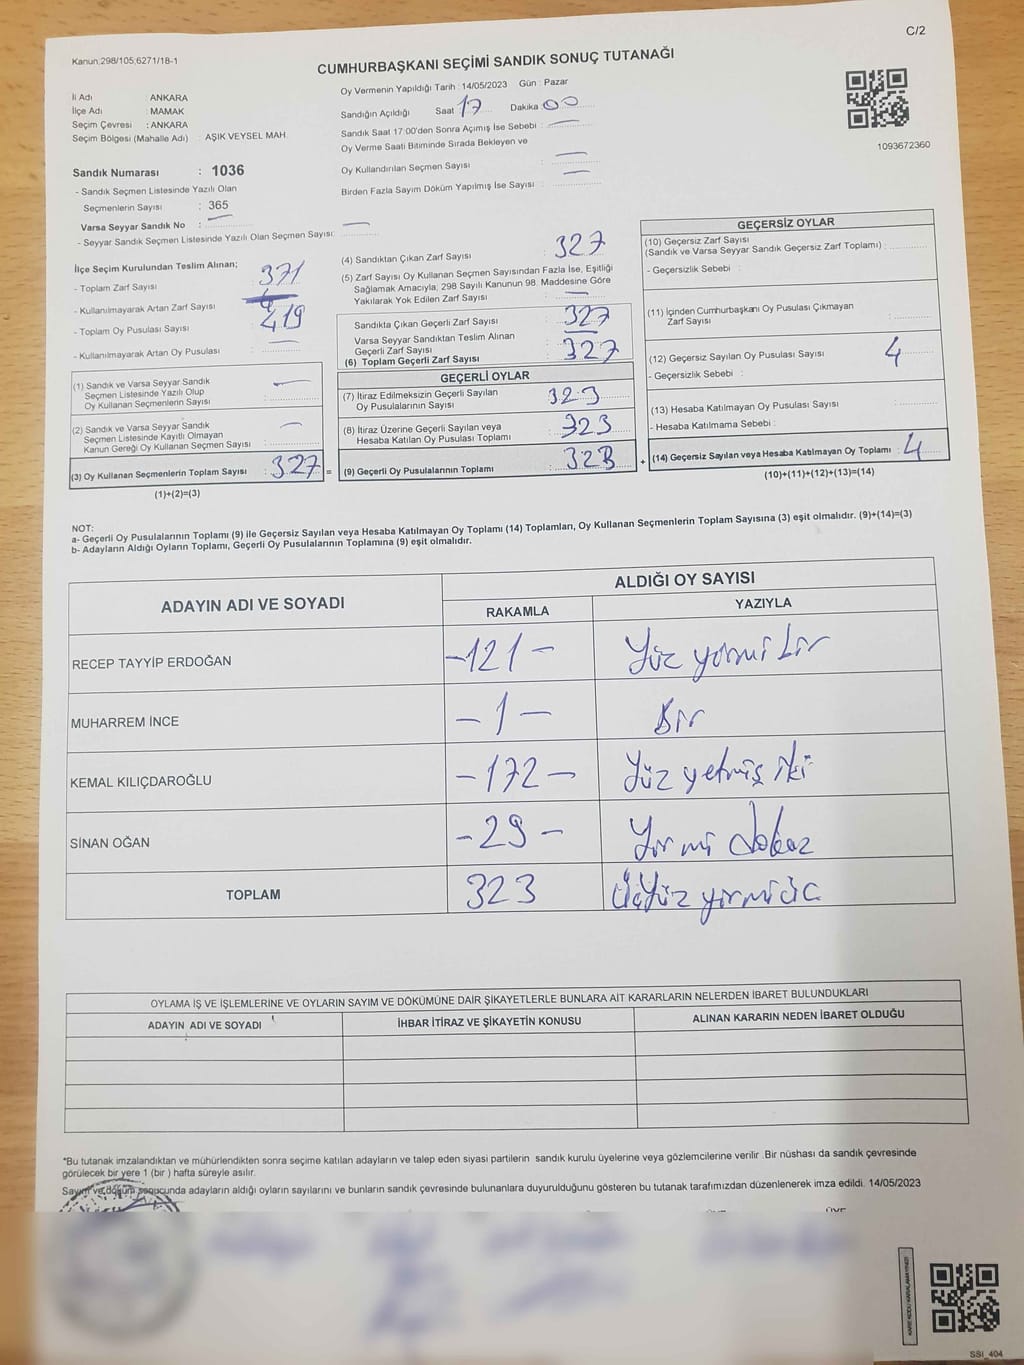 C/2
Kanun;298/105;6271/18-1
CUMHURBAŞKANI SEÇİMİ SANDIK SONUÇ TUTANAĞI
İl Adı : ANKARA
İlçe Adı : MAMAK
Seçim Çevresi : ANKARA
Seçim Bölgesi (Mahalle Adı) : AŞIK VEYSEL MAH.
Oy Vermenin Yapıldığı Tarih : 14/05/2023 Gün : Pazar
Sandığın Açıldığı Saat 17 Dakika 00
Sandık Saat 17:00'den Sonra Açımış İse Sebebi : —
Oy Verme Saati Bitiminde Sırada Bekleyen ve
Oy Kullandırılan Seçmen Sayısı : —
Birden Fazla Sayım Döküm Yapılmış İse Sayısı : —
1093672360
Sandık Numarası : 1036
- Sandık Seçmen Listesinde Yazılı Olan
Seçmenlerin Sayısı : 365
Varsa Seyyar Sandık No : —
- Seyyar Sandık Seçmen Listesinde Yazılı Olan Seçmen Sayısı: —
İlçe Seçim Kurulundan Teslim Alınan;
- Toplam Zarf Sayısı : 371
- Kullanılmayarak Artan Zarf Sayısı
- Toplam Oy Pusulası Sayısı : 419
- Kullanılmayarak Artan Oy Pusulası : —
(1) Sandık ve Varsa Seyyar Sandık
Seçmen Listesinde Yazılı Olup
Oy Kullanan Seçmenlerin Sayısı : —
(2) Sandık ve Varsa Seyyar Sandık
Seçmen Listesinde Kayıtlı Olmayan
Kanun Gereği Oy Kullanan Seçmen Sayısı : —
(3) Oy Kullanan Seçmenlerin Toplam Sayısı : 327 =
(1)+(2)=(3)
(4) Sandıktan Çıkan Zarf Sayısı : 327
(5) Zarf Sayısı Oy Kullanan Seçmen Sayısından Fazla İse, Eşitliği
Sağlamak Amacıyla; 298 Sayılı Kanunun 98. Maddesine Göre
Yakılarak Yok Edilen Zarf Sayısı : —
Sandıkta Çıkan Geçerli Zarf Sayısı : 327
Varsa Seyyar Sandıktan Teslim Alınan
Geçerli Zarf Sayısı : —
(6) Toplam Geçerli Zarf Sayısı : 327
GEÇERLİ OYLAR
(7) İtiraz Edilmeksizin Geçerli Sayılan
Oy Pusulalarının Sayısı : 323
(8) İtiraz Üzerine Geçerli Sayılan veya
Hesaba Katılan Oy Pusulası Toplamı : 323
(9) Geçerli Oy Pusulalarının Toplamı : 323 +
GEÇERSİZ OYLAR
(10) Geçersiz Zarf Sayısı
(Sandık ve Varsa Seyyar Sandık Geçersiz Zarf Toplamı) :
- Geçersizlik Sebebi :
(11) İçinden Cumhurbaşkanı Oy Pusulası Çıkmayan
Zarf Sayısı :
(12) Geçersiz Sayılan Oy Pusulası Sayısı : 4
- Geçersizlik Sebebi :
(13) Hesaba Katılmayan Oy Pusulası Sayısı :
- Hesaba Katılmama Sebebi :
(14) Geçersiz Sayılan veya Hesaba Katılmayan Oy Toplamı : 4
(10)+(11)+(12)+(13)=(14)
NOT:
a- Geçerli Oy Pusulalarının Toplamı (9) ile Geçersiz Sayılan veya Hesaba Katılmayan Oy Toplamı (14) Toplamları, Oy Kullanan Seçmenlerin Toplam Sayısına (3) eşit olmalıdır. (9)+(14)=(3)
b- Adayların Aldığı Oyların Toplamı, Geçerli Oy Pusulalarının Toplamına (9) eşit olmalıdır.
ADAYIN ADI VE SOYADI
ALDIĞI OY SAYISI
RAKAMLA YAZIYLA
RECEP TAYYİP ERDOĞAN -121- Yüz yirmi bir
MUHARREM İNCE -1- Bir
KEMAL KILIÇDAROĞLU -172- Yüz yetmiş iki
SİNAN OĞAN -29- Yirmi dokuz
TOPLAM 323 Üçyüz yirmi üç
OYLAMA İŞ VE İŞLEMLERİNE VE OYLARIN SAYIM VE DÖKÜMÜNE DAİR ŞİKAYETLERLE BUNLARA AİT KARARLARIN NELERDEN İBARET BULUNDUKLARI
ADAYIN ADI VE SOYADI İHBAR İTİRAZ VE ŞİKAYETİN KONUSU ALINAN KARARIN NEDEN İBARET OLDUĞU
*Bu tutanak imzalandıktan ve mühürlendikten sonra seçime katılan adayların ve talep eden siyasi partilerin sandık kurulu üyelerine veya gözlemcilerine verilir .Bir nüshası da sandık çevresinde
görülecek bir yere 1 (bir ) hafta süreyle asılır.
Sayım ve döküm sonucunda adayların aldığı oyların sayılarını ve bunların sandık çevresinde bulunanlara duyurulduğunu gösteren bu tutanak tarafımızdan düzenlenerek imza edildi. 14/05/2023
KARE KODU KARALAMAYINIZ!
SSİ_404